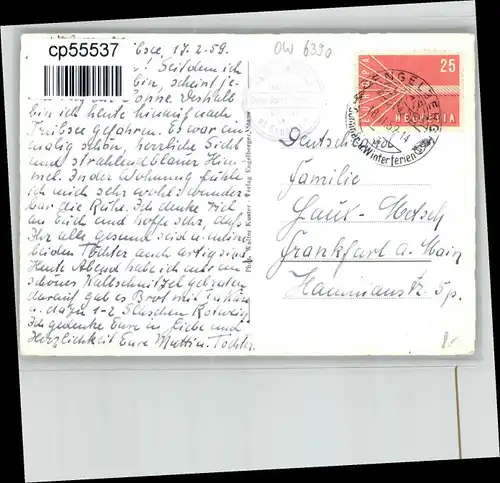 cp55537
OW 6390
Trübsee, 17.2.59.
! Seitdem ich
bin, scheint je-
Sonne. Deshalb
bin ich heute hinauf nach
Trübsee gefahren. Es war ein-
malig schön, herrliche Sicht
und strahlendblauer Him-
mel. In der Wohnung fühle
ich mich sehr wohl, wunder-
bar die Ruhe. Ich denke viel
an Euch und hoffe sehr, daß
Ihr alle gesund seid u. meine
beiden Töchter auch artig sind.
Heute Abend habe ich mir ein
schönes Kalbschnitzel gebraten,
darauf gab es Brot mit
u. dazu 1-2 Gläschen Rotwein.
Ich gedenke Eure in Liebe und
Herzlichkeit Eure Mutti u. Tochter.
Photo Walter Kuster · Verlag Engelberger
Deutschland
Familie
Frankfurt a. Main
Haumianstr. 5p.
EUROPA
25
HELVETIA
ENGELBERG
Sommer & Winterferien
8.-